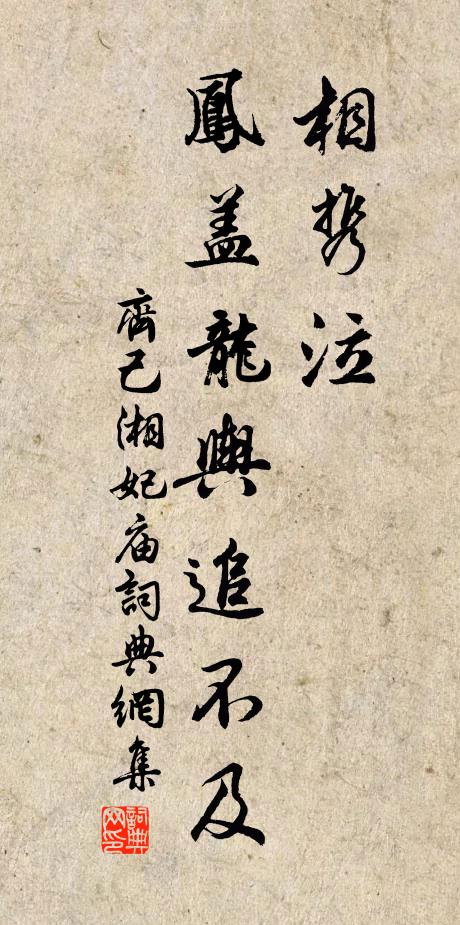 相携泣
鳳盖龍輿追不及
齊己湘妃庙詞典網集
詞典网印